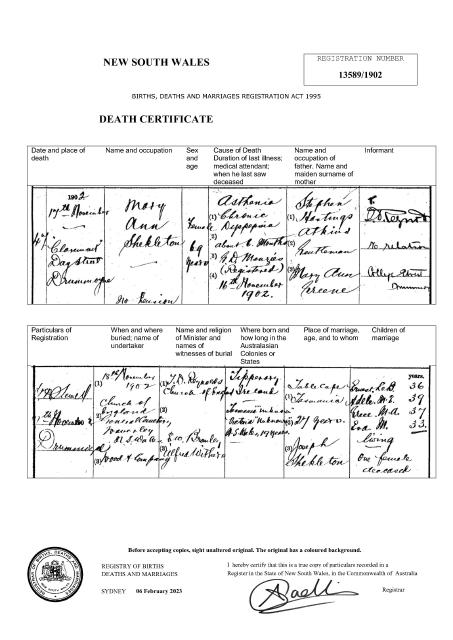 NEW SOUTH WALES
REGISTRATION NUMBER
13589/1902
BIRTHS, DEATHS AND MARRIAGES REGISTRATION ACT 1995
DEATH CERTIFICATE
Date and place of death
Name and occupation
Sex and age
Cause of Death
Duration of last illness;
medical attendant;
when he last saw
deceased
Name and
occupation of
father. Name and
maiden surname of
mother
Informant
1902
17th November
Claremont
Day Street
Drummoyne
Mary
Ann
Shekleton
No Pension
Female
69
years
Asthenia
(1) Chronic
Dyspepsia
(2) about 6 Months
(3)
(Registered)
(4) 16th November
1902.
Stephen
(1) Hastings
Atkins
(2) Gentleman
(3) Mary Ann
Greene
No relation
College Street
Particulars of
Registration
When and where
buried; name of
undertaker
Name and religion
of Minister and
names of
witnesses of burial
Where born and
how long in the
Australasian
Colonies or
States
Place of marriage,
age, and to whom
Children of
marriage
(1) 18th November
1902
Church of
(2) England
Waverley
N.S. Wales
(3) Wood & Company
(1) T. D. Reynolds
Church of England
Alfred
Tipperary
Ireland
Tasmania unknown
Victoria unknown
N.S. Wales, 19 years.
Table Cape
(1) Tasmania
(2) 27 years.
(3) Joseph
Shekleton
years.
36
Adela M. E. 39
M. A. 37
Eva M. 33.
living
One female
deceased
Before accepting copies, sight unaltered original. The original has a coloured background.
REGISTRY OF BIRTHS
DEATHS AND MARRIAGES
SYDNEY 06 February 2023
I hereby certify that this is a true copy of particulars recorded in a
Register in the State of New South Wales, in the Commonwealth of Australia
Registrar